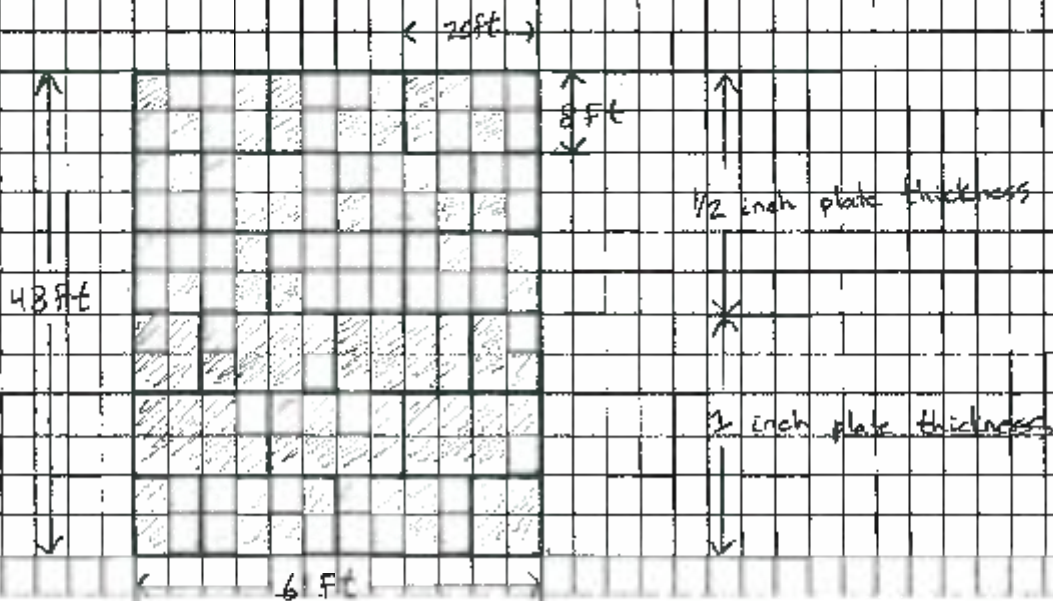 20ft
8 Ft
1/2 inch plate thickness
48 Ft
1 inch plate thickness
Ft